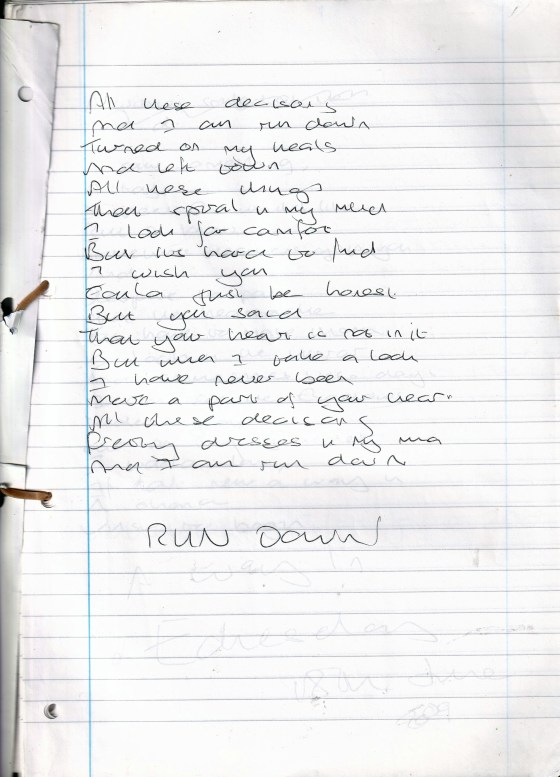 All these decisions
And I am run down
Turned on my heals
And left town
All these things
That spiral in my mind
I look for comfort
But its hard to find
I wish you
Could just be honest
But you said
That your heart is not in it
But when I take a look
I have never been
Made a part of your heart.
All these decisions
Pretty dresses in my
And I am run down
RUN DOWN